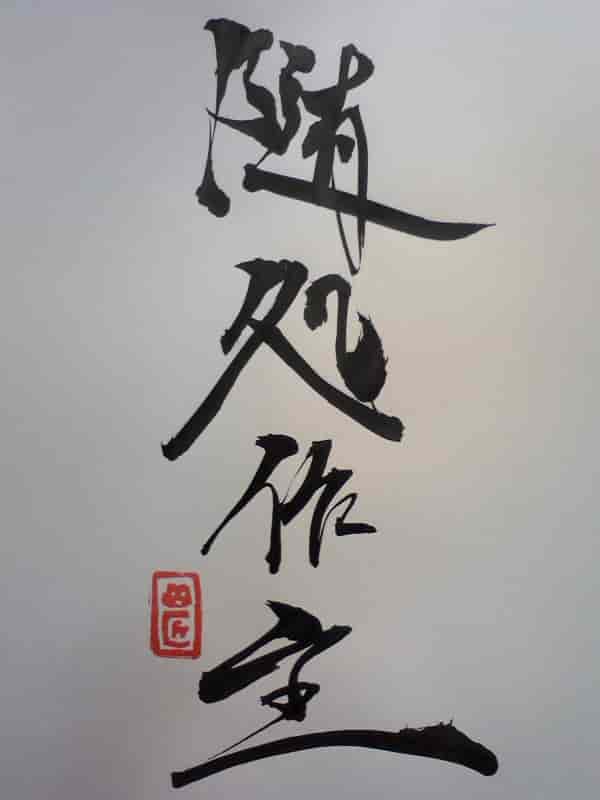 随処作主